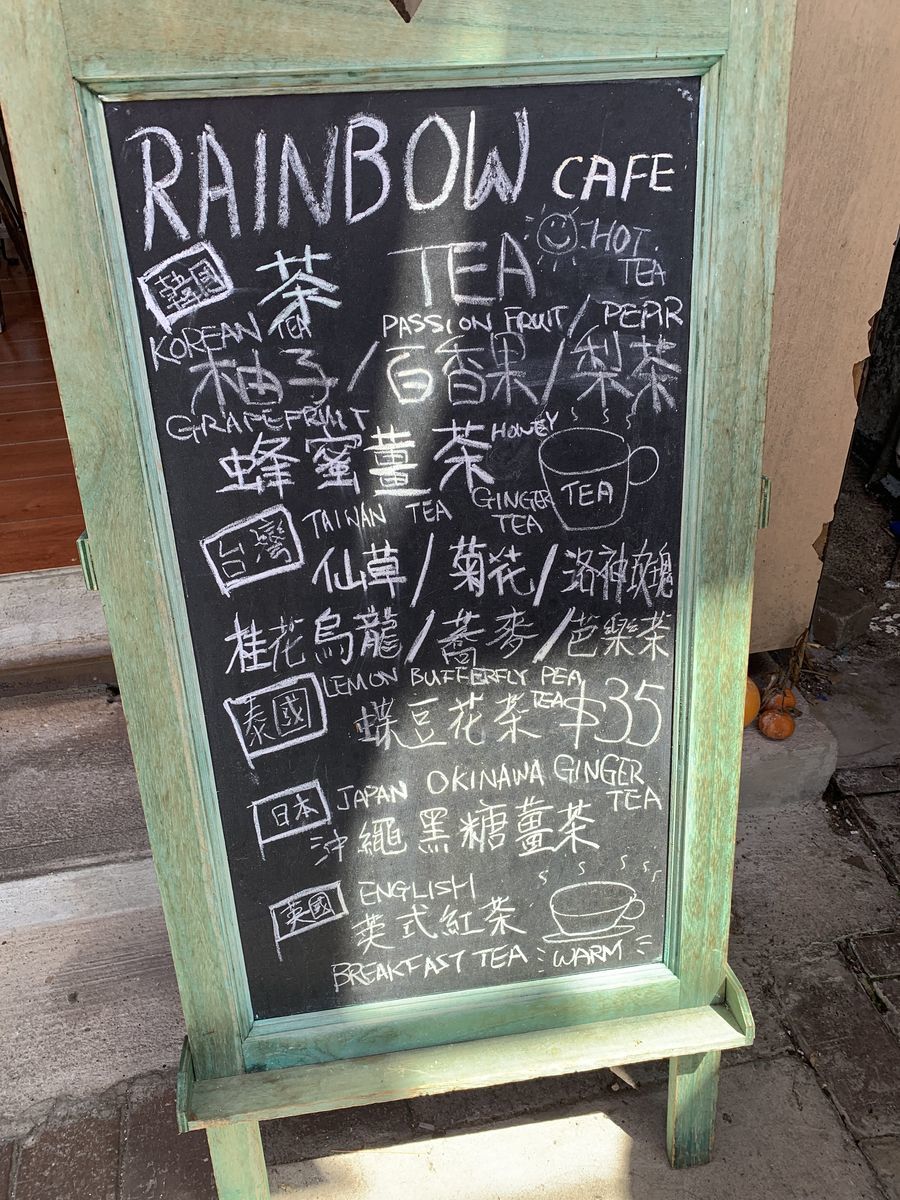 RAINBOW CAFE
韓國 茶 TEA HOT TEA
KOREAN TEA PASSION FRUIT / PEAR
柚子/百香果/梨茶
GRAPEFRUIT
蜂蜜薑茶 HONEY GINGER TEA
TEA
台灣 TAIWAN TEA
仙草/菊花/洛神玫瑰
桂花烏龍/蕎麥/芭樂茶
泰國 LEMON BUFFERFLY PEA TEA
蝶豆花茶 $35
日本 JAPAN OKINAWA GINGER TEA
沖繩黑糖薑茶
英國 ENGLISH
英式紅茶
BREAKFAST TEA WARM